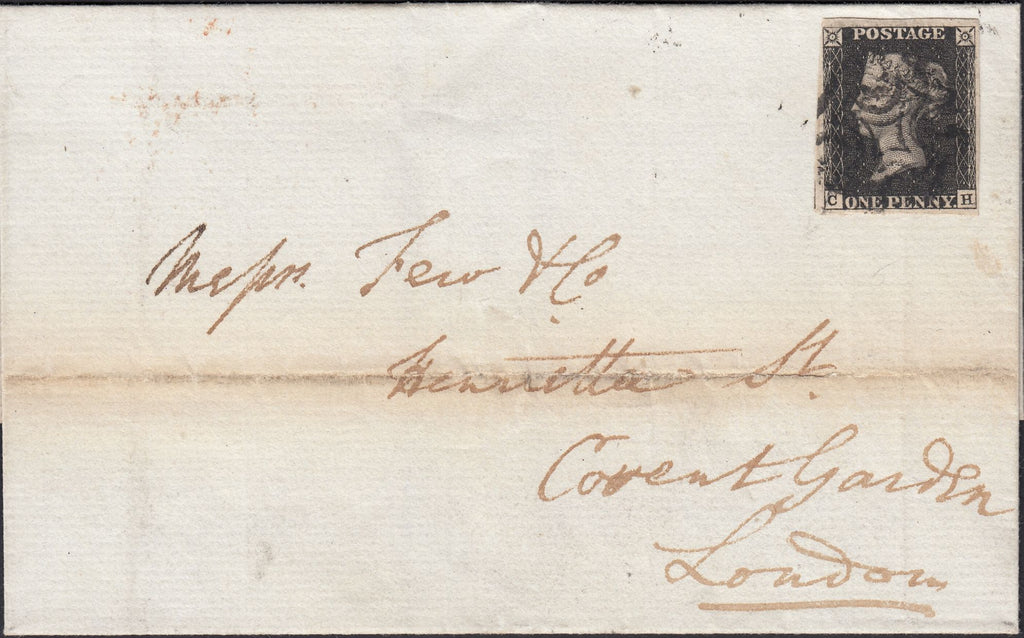 POSTAGE
C ONE PENNY. H
Messrs. Few & Co
Henrietta St.
Covent Garden
London